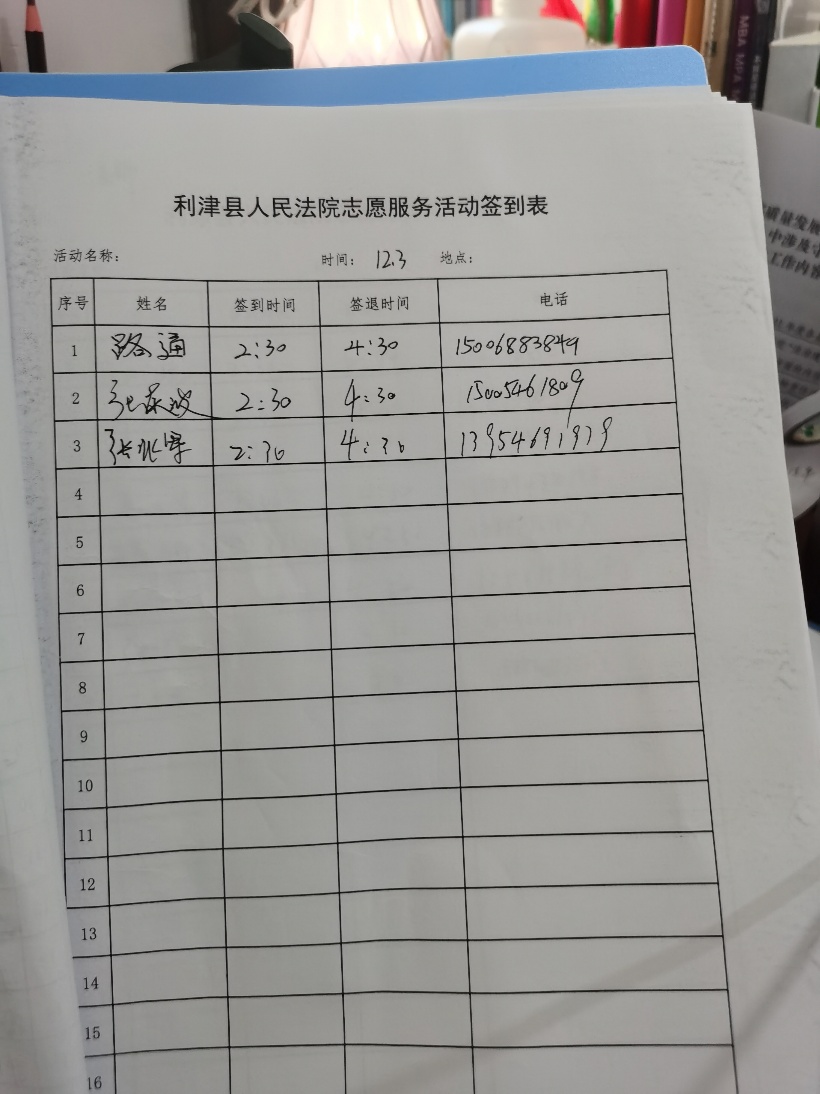 MBA MPA
利津县人民法院志愿服务活动签到表
活动名称： 时间： 12.3 地点：
序号 姓名 签到时间 签退时间 电话
1 路通 2:30 4:30 15006883849
2 2:30 4:30 15005461809
3 张兆军 2:30 4:30 13954691979
4
5
6
7
8
9
10
11
12
13
14
15
16
质量发展
中涉及
工作内容